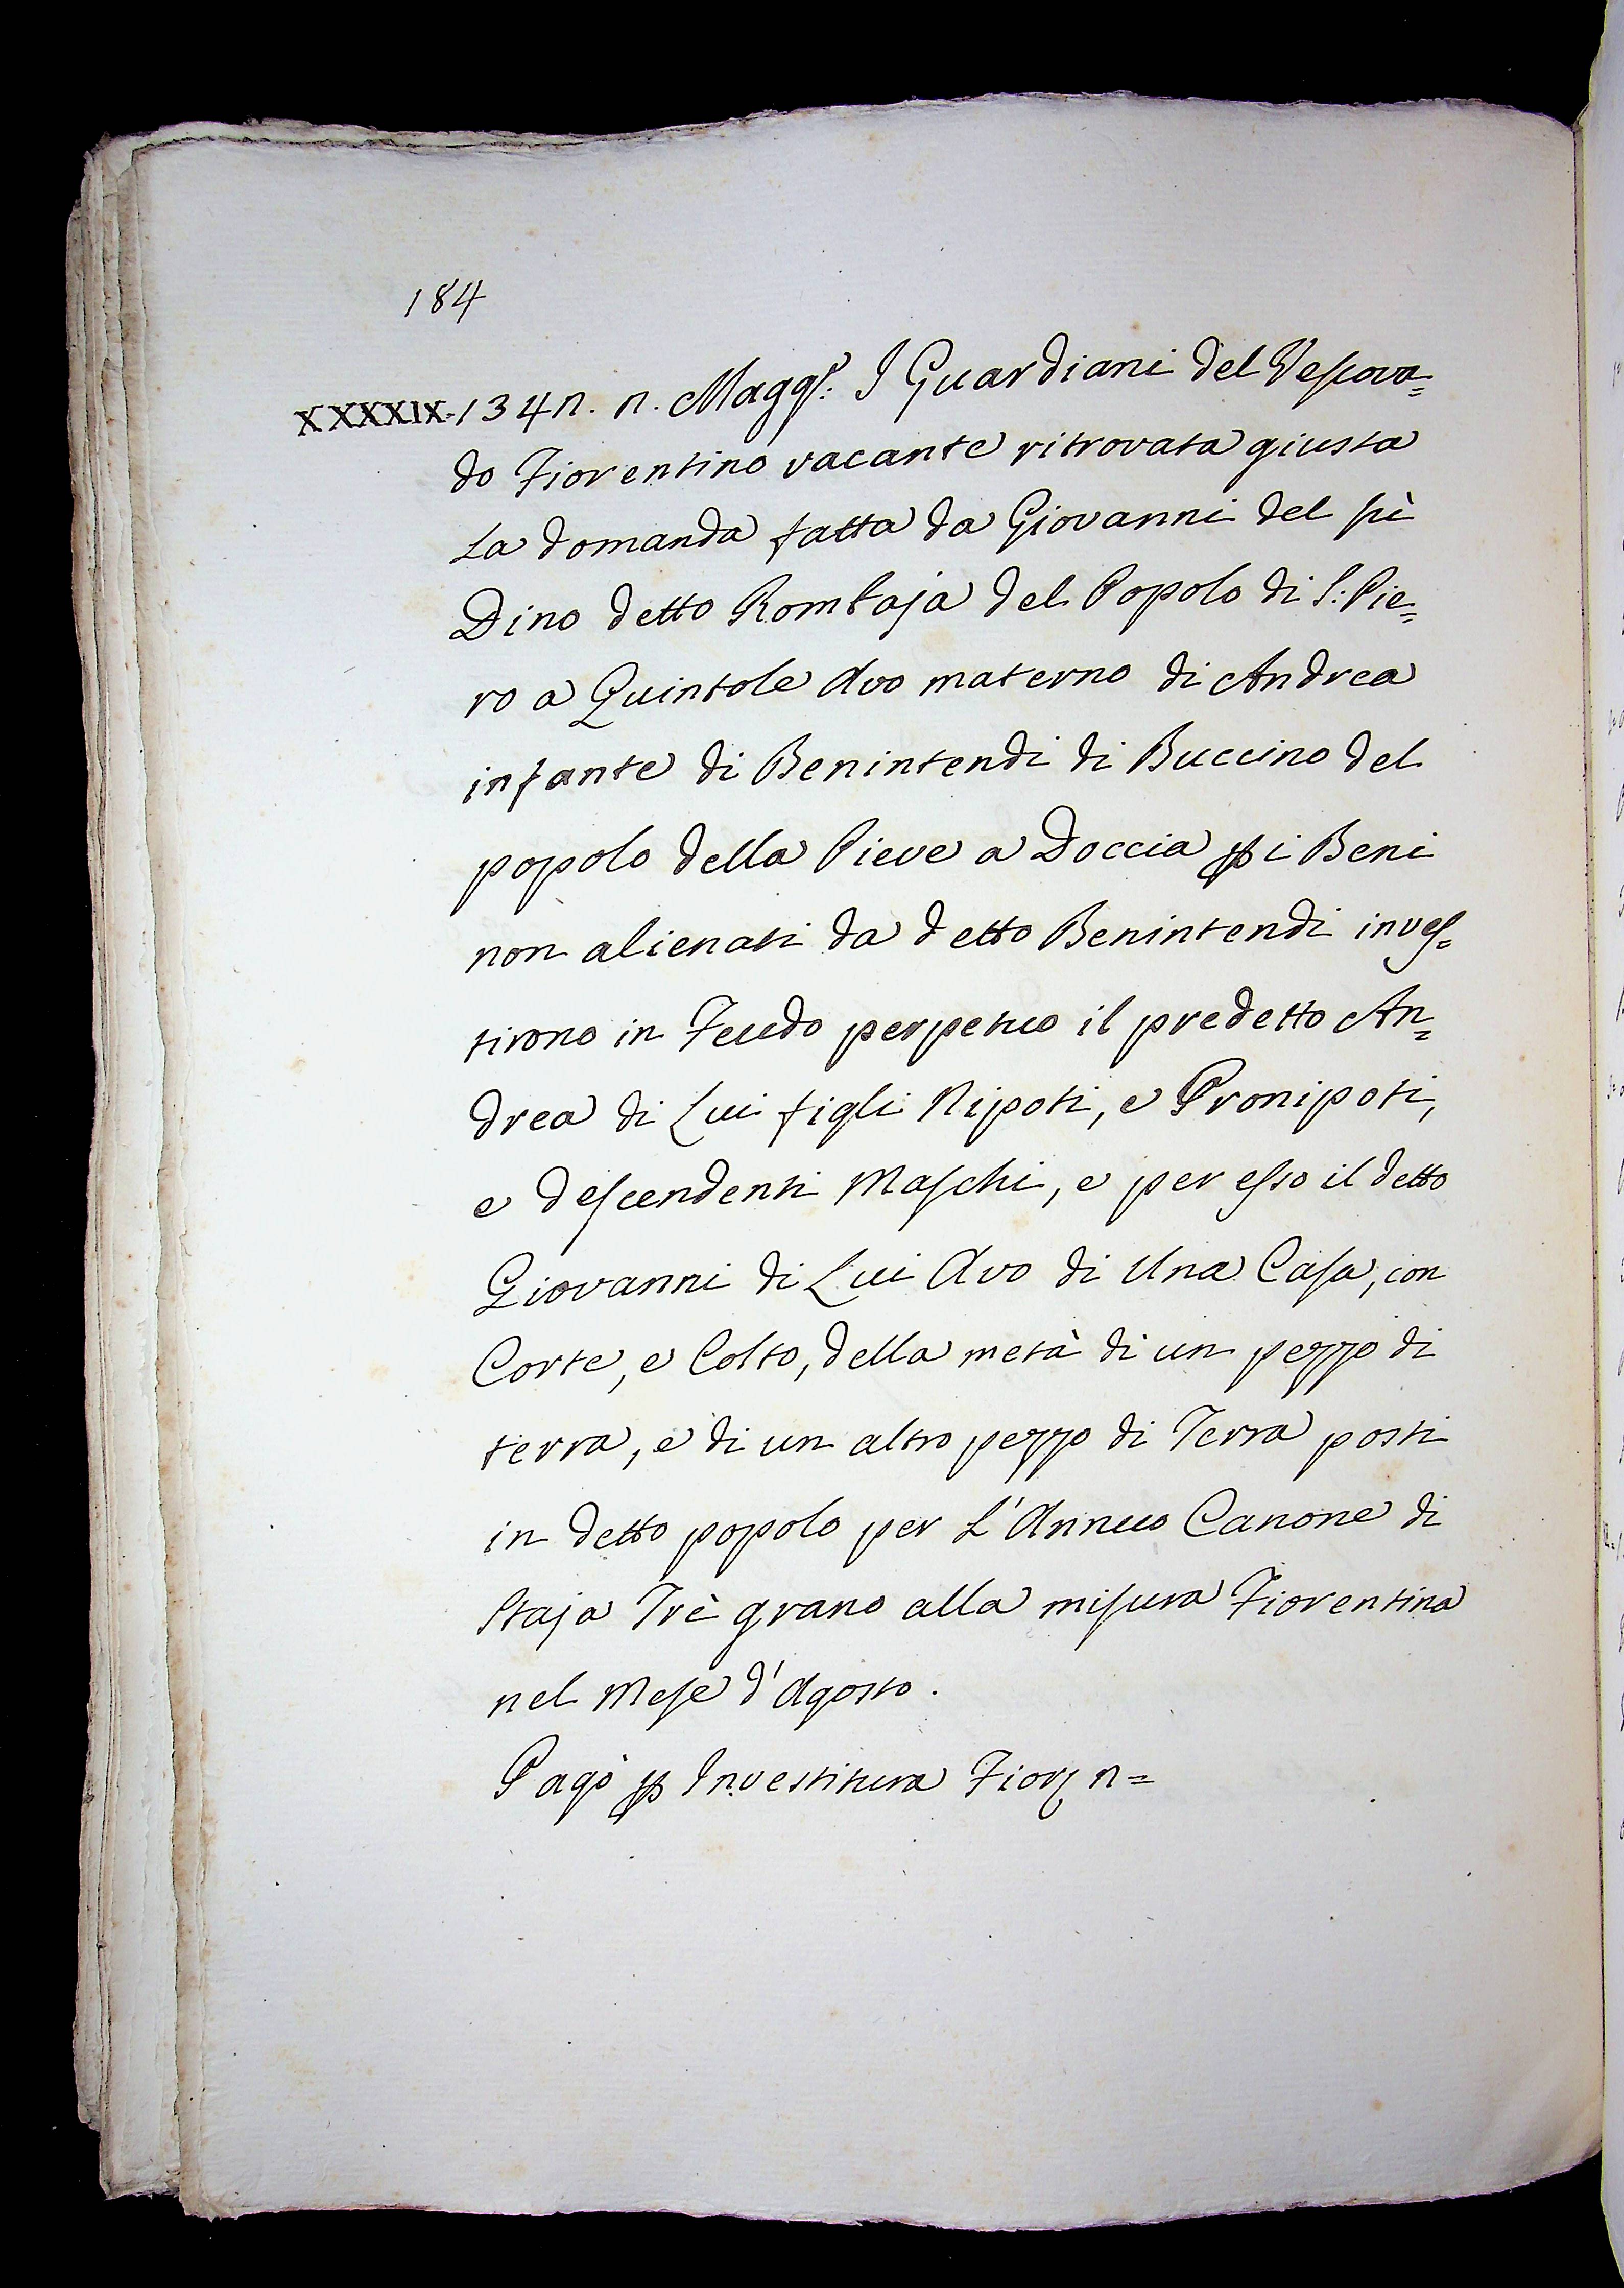 184
XXXXIX. 134n. n. Magg.º: I Guardiani del Vescova=
do Fiorentino vacante ritrovata giusta
La domanda fatta da Giovanni del fù
Dino detto Rombaja del Popolo di S: Pie=
ro a Quintole Avo materno di Andrea
infante di Benintendi di Buccino del
popolo della Pieve a Doccia ꝑ i Beni
non alienati da detto Benintendi inves=
tirono in Feudo perpetuo il predetto An=
drea di Lui figli Nipoti, e Pronipoti,
e descendenti Maschi, e per esso il detto
Giovanni di Lui Avo di Una Casa, con
Corte, e Colto, della metà di un pezzo di
terra, e di un altro pezzo di Terra posti
in detto popolo per L'Annuo Canone di
Staja Trè grano alla misura Fiorentina
nel Mese d'Agosto.
Pagò ꝑ Investitura n=